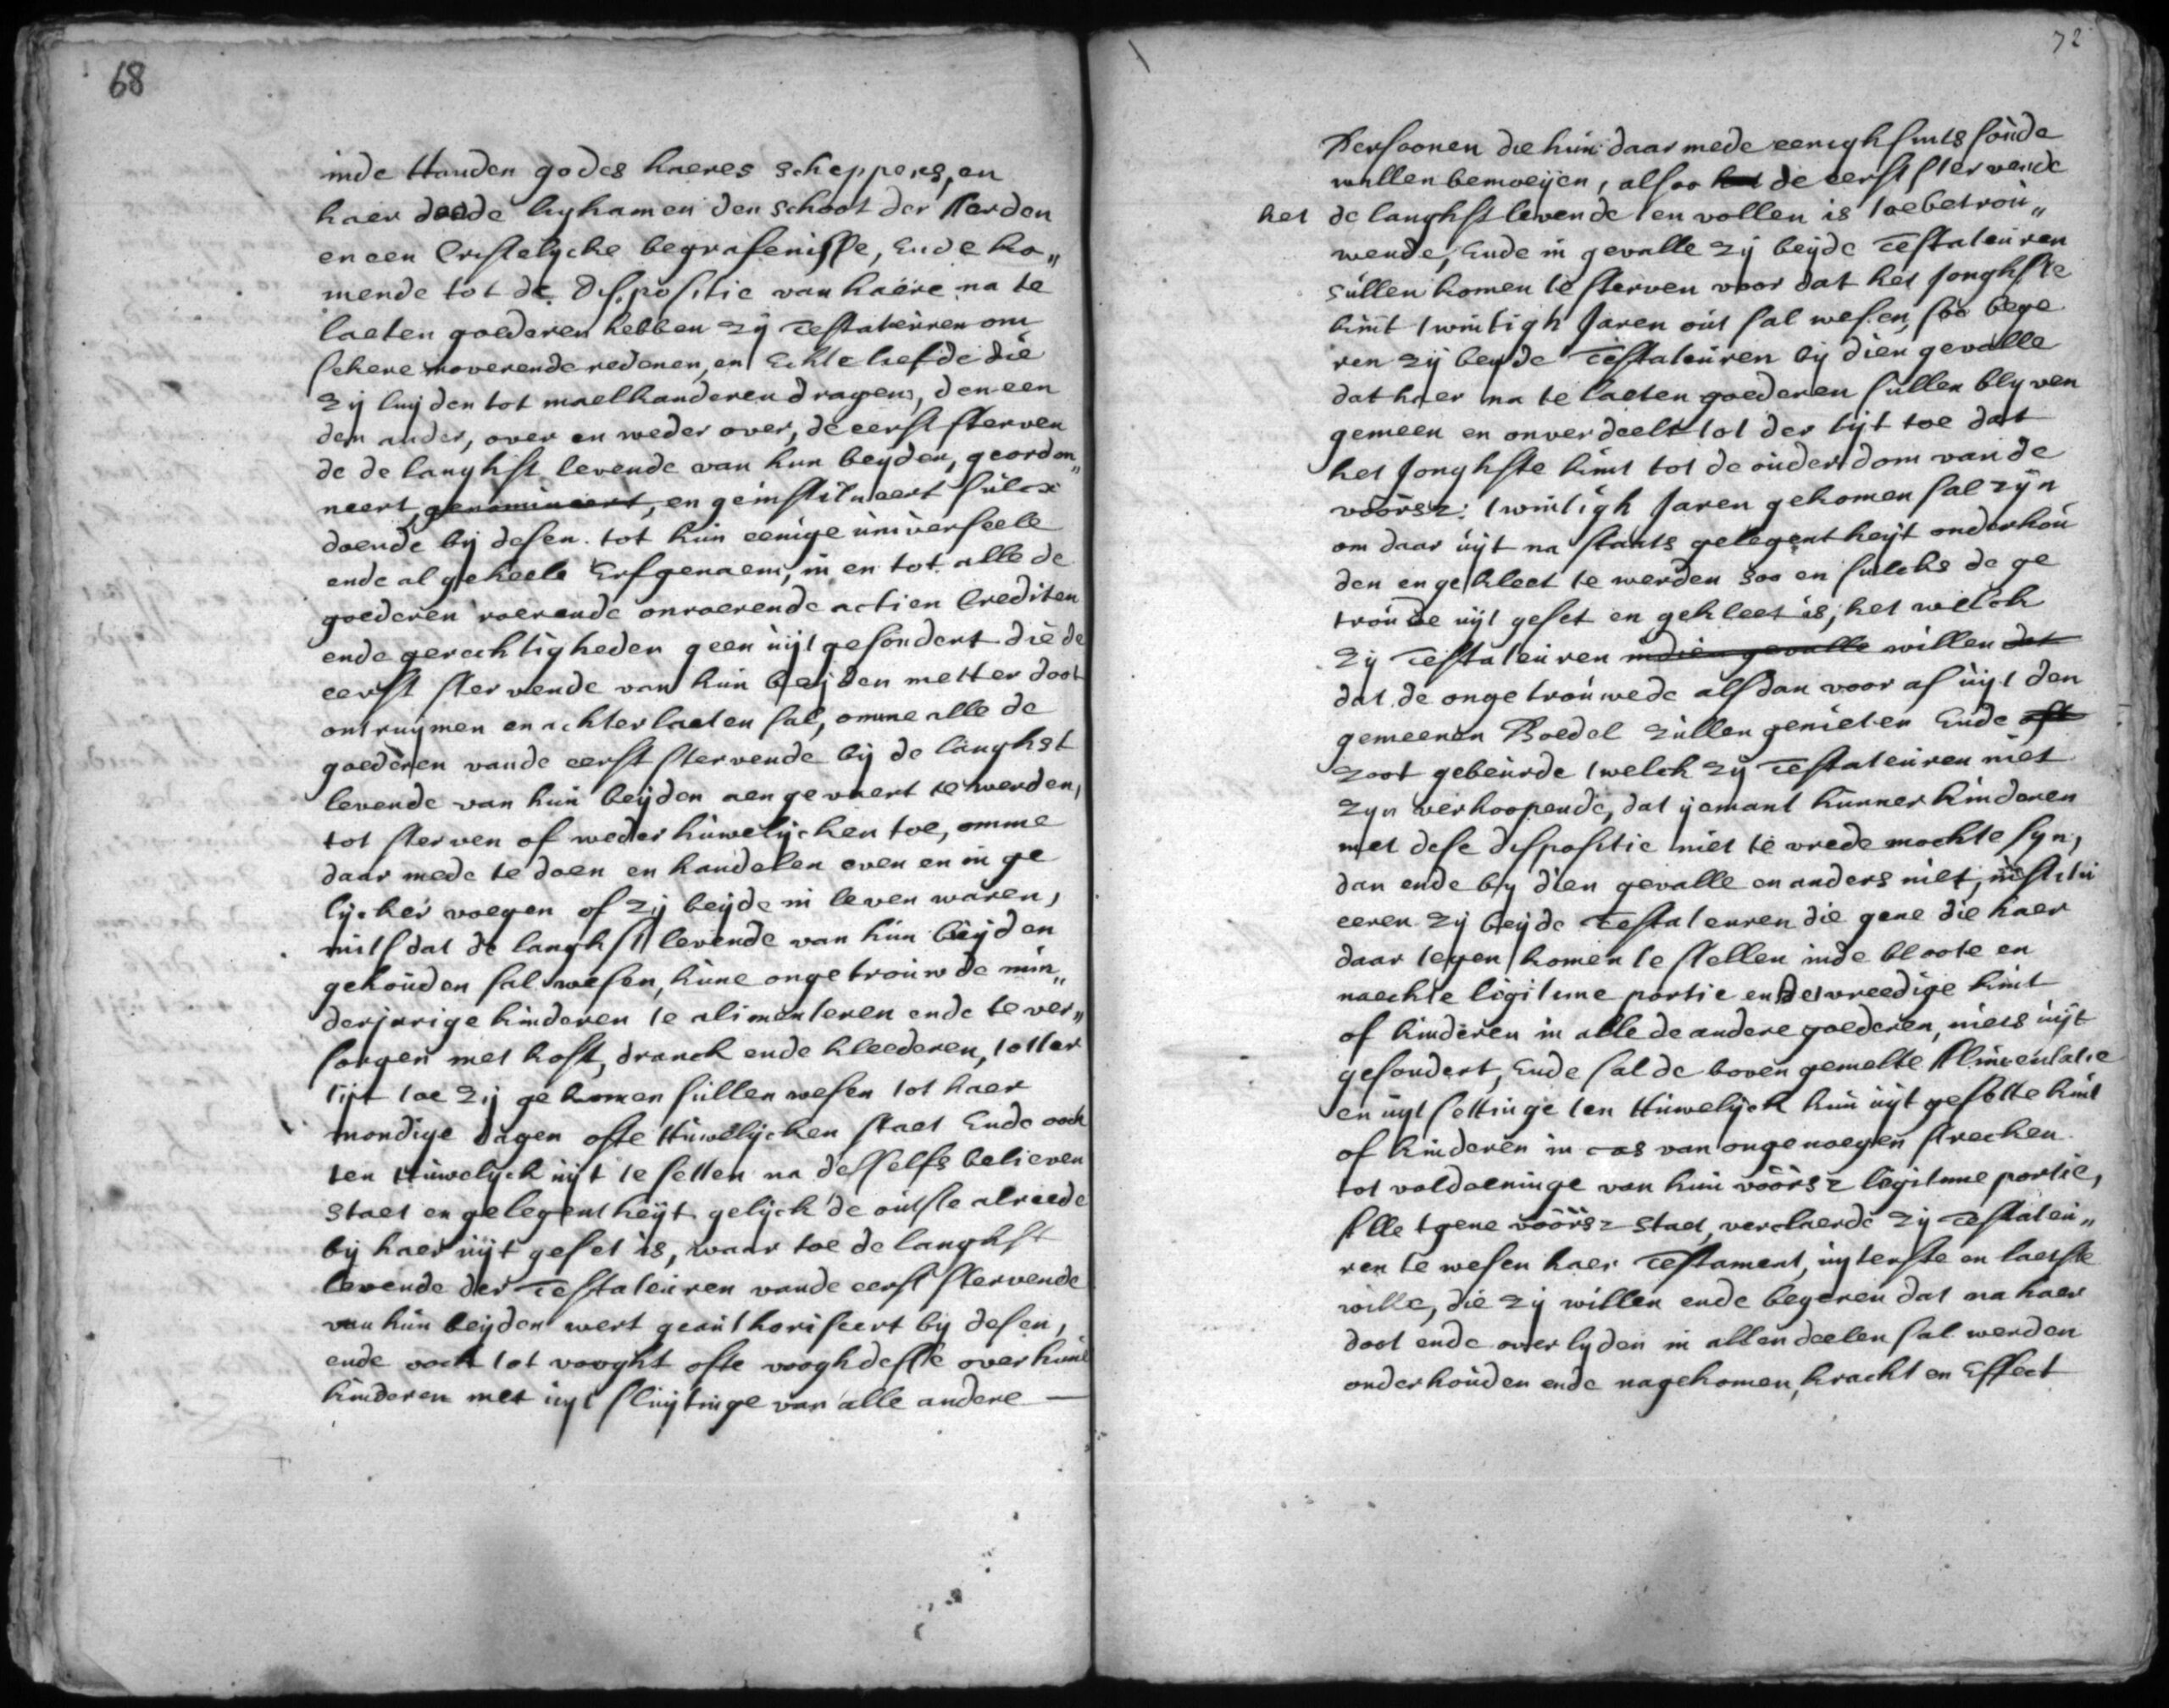 68
inde Handen godes haeres scheppers, en
haer doode lyhamen den schoot der Aerden
en een Cristelycke begrafenisse, Ende ko„
mende tot de Dispositie van haere na te
laeten goederen hebben zij Testateuren om
sekere moverende redenen, en Echte liefde die
zij luyden tot maelkanderen dragen, den een
den ander, over en weder over, de eerst sterven
de de langhst levende van hun beyden, geordon„
neert, genomineert, en geinstitueert sulcx
doende bij desen tot hun eenige universeele
ende al geheele Erfgenaem, in en tot alle de
goederen roerende onroerende actien Crediten
ende gerechtigheden geen uijtgesondert die de
eerst stervende van hun beijden metter doot
ontruymen en achterlaeten sal, omme alle de
goederen vande eerst stervende bij de langhst
levende van hun beijden aengevaert te werden,
tot sterven of weder huwelijcken toe, omme
daar mede te doen en handelen even en in ge
lijcker voegen of zij beijde in leven waren,
mits dat de langhst levende van hun beijden
gehouden sal wesen, hune ongetrouwde min„
derjarige kinderen te alimenteren ende te ver„
sorgen met kost, dranck ende kleederen, totter
tijt toe zij gekomen sullen wesen tot haer
mondige dagen ofte Huwelijcken staet Ende oock
ten Huwelyck uijt te setten na desselfs believen
staet en gelegentheijt gelijck de outste alreede
bij haer uijt geset is, waar toe de langhst
levende der Testateuren vande eerst stervende
van hun beijden wert geauthoriseert bij desen,
ende oock tot vooght ofte vooghdesse over hune
kinderen met uyt sluijtinge van alle andere —
72
Persoonen die hun daar mede eenighsints soude
willen bemoeijen, alsoo het de eerst stervende
het de langhst levende ten vollen is toebetrou„
wende, Ende in gevalle zij beijde Testateuren
sullen komen te sterven voor dat het Jonghste
kint twintigh Jaren out sal wesen, soo bege
ren zij beyde Testateuren bij dien gevalle
dat haer na te laeten goederen sullen blyven
gemeen en onverdeelt tot der tijt toe dat
het Jonghste kint tot de ouderdom van de
voorsz: twintigh Jaren gekomen sal zijn
om daar uijt na staats gelegentheijt onderhou
den en gekleet te werden soo en sulcks de ge
troude uijt geset en gekleet is, het welck
zij Testateuren indien gevalle willen dat
dat de ongetrouwede alsdan voor af uijt den
gemeenen Boedel zullen genieten Ende oft
zoot gebeurde twelck zij Testateuren niet
zyn verhoopende, dat ijemant hunner kinderen
met dese dispositie niet te vrede mochte syn,
dan ende by dien gevalle en anders niet, institu
eeren zij beijde Testateuren die gene die haer
daar tegen komen te stellen inde bloote en
naeckte ligitime portie en de vreedige kint
of kinderen in alle de andere goederen, niets uijt
gesondert, Ende sal de boven gemelte Alimentatie
en uytsettinge ten Huwelijck hun uijt gesette kint
of kinderen in cas van ongenoegen strecken
tot voldoeninge van hun voorsz legitime portie,
Alle tgene voorsz staet, verclaerde zij Testateu„
ren te wesen haer Testament, uyterste en laetste
wille, die zij willen ende begeren dat na haer
doot ende overlyden in allen deelen sal werden
onderhouden ende nagekomen, kracht en Effect